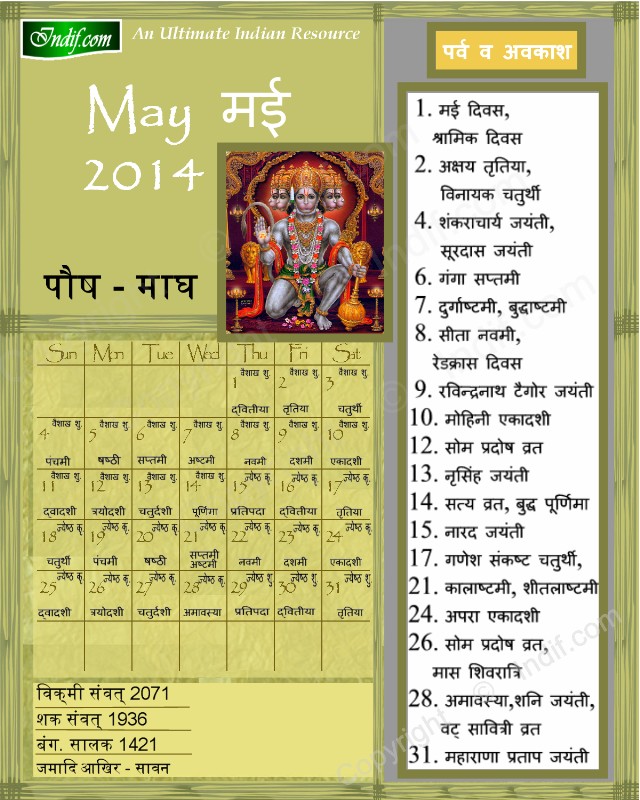 Indif.com An Ultimate Indian Resource
May मई
2014
पौष - माघ
Sun Mon Tue Wed Thu Fri Sat
वैशाख शु. वैशाख शु. वैशाख शु.
1 2 3
द्वितीया तृतिया चतुर्थी
वैशाख शु. वैशाख शु. वैशाख शु. वैशाख शु. वैशाख शु. वैशाख शु. वैशाख शु.
4 5 6 7 8 9 10
पंचमी षष्ठी सप्तमी अष्टमी नवमी दशमी एकादशी
वैशाख शु. वैशाख शु. वैशाख शु. वैशाख शु. ज्येष्ठ कृ. ज्येष्ठ कृ. ज्येष्ठ कृ.
11 12 13 14 15 16 17
द्वादशी त्रयोदशी चतुर्दशी पूर्णिमा प्रतिपदा द्वितीया तृतिया
ज्येष्ठ कृ. ज्येष्ठ कृ. ज्येष्ठ कृ. ज्येष्ठ कृ. ज्येष्ठ कृ. ज्येष्ठ कृ. ज्येष्ठ कृ.
18 19 20 21 22 23 24
चतुर्थी पंचमी षष्ठी सप्तमी अष्टमी नवमी दशमी एकादशी
ज्येष्ठ कृ. ज्येष्ठ कृ. ज्येष्ठ कृ. ज्येष्ठ कृ. ज्येष्ठ शु ज्येष्ठ शु ज्येष्ठ शु
25 26 27 28 29 30 31
द्वादशी त्रयोदशी चतुर्दशी अमावस्या प्रतिपदा द्वितीया तृतिया
विक्रमी संवत् 2071
शक संवत् 1936
बंग. सालक 1421
जमादि आखिर - सावन
पर्व व अवकाश
1. मई दिवस,
श्रामिक दिवस
2. अक्षय तृतिया,
विनायक चतुर्थी
4. शंकराचार्य जयंती,
सूरदास जयंती
6. गंगा सप्तमी
7. दुर्गाष्टमी, बुद्धाष्टमी
8. सीता नवमी,
रेडक्रास दिवस
9. रविन्द्रनाथ टैगोर जयंती
10. मोहिनी एकादशी
12. सोम प्रदोष व्रत
13. नृसिंह जयंती
14. सत्य व्रत, बुद्ध पूर्णिमा
15. नारद जयंती
17. गणेश संकष्ट चतुर्थी,
21. कालाष्टमी, शीतलाष्टमी
24. अपरा एकादशी
26. सोम प्रदोष व्रत,
मास शिवरात्रि
28. अमावस्या,शनि जयंती,
वट् सावित्री व्रत
31. महाराणा प्रताप जयंती
Copyright © Indif.com